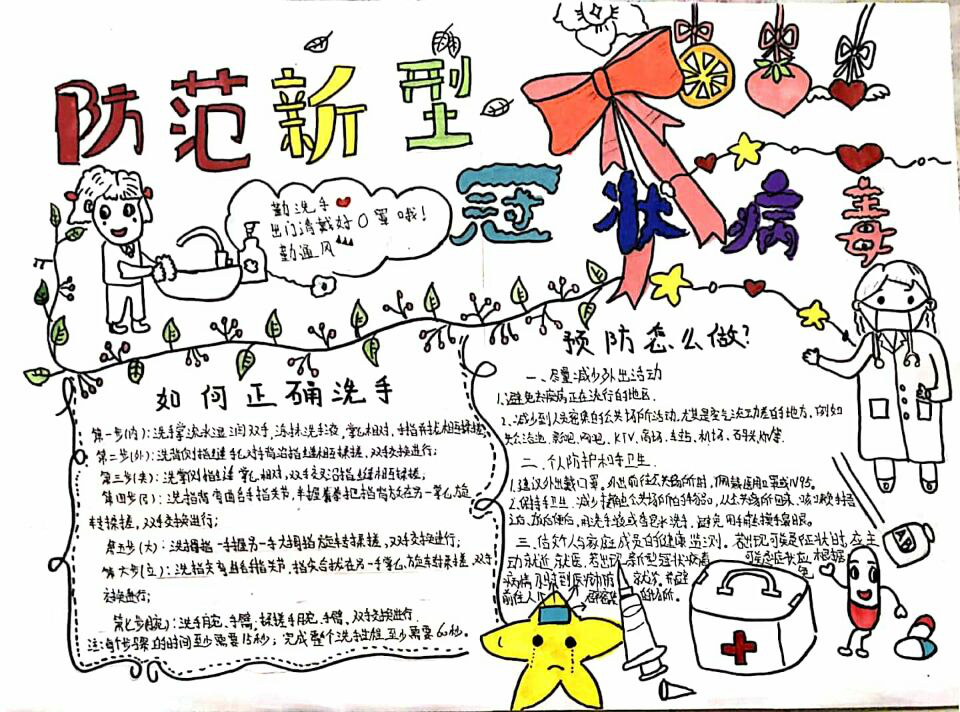 防范新型
冠状病毒
勤洗手
出门请戴好口罩哦!
勤通风
如何正确洗手
第一步(内):洗手掌 流水湿润双手,涂抹洗手液,掌心相对,手指并拢相互揉搓;
第二步(外):洗背侧指缝 手心对手背沿指缝相互揉搓,双手交换进行;
第三步(夹):洗掌侧指缝 掌心相对,双手交叉沿指缝相互揉搓;
第四步(弓):洗指背 弯曲各手指关节,半握拳把指背放在另一掌心旋
转揉搓,双手交换进行;
第五步(大):洗拇指 一手握另一手大拇指旋转揉搓,双手交换进行;
第六步(立):洗指尖 弯曲各手指关节,指尖合拢在另一手掌心旋转揉搓,双手
交换进行;
第七步(腕):洗手腕、手臂 揉搓手腕、手臂,双手交换进行.
注:每个步骤的时间至少需要15秒;完成整个洗手过程至少需要60秒。
预防怎么做?
一、尽量减少外出活动
1.避免去疾病正在流行的地区.
2.减少到人员密集的公共场所活动,尤其是空气流动差的地方,例如
公共浴池、影吧、网吧、KTV、商场、车站、机场、
二、个人防护和手卫生.
1.建议外出戴口罩。外出前往公共场所时,佩戴医用口罩或N95。
2.保持手卫生.减少接触公共场所的物品,从公共场所回来、咳嗽手捂
之后、饭前便后,用洗手液或香皂水洗手,避免用手触摸口鼻眼。
三、信效人与家庭成员的健康监测。若出现可疑症状时,应主
动就近就医。若出现新型冠状病毒 可疑症状应根据
病情
前往人
AB